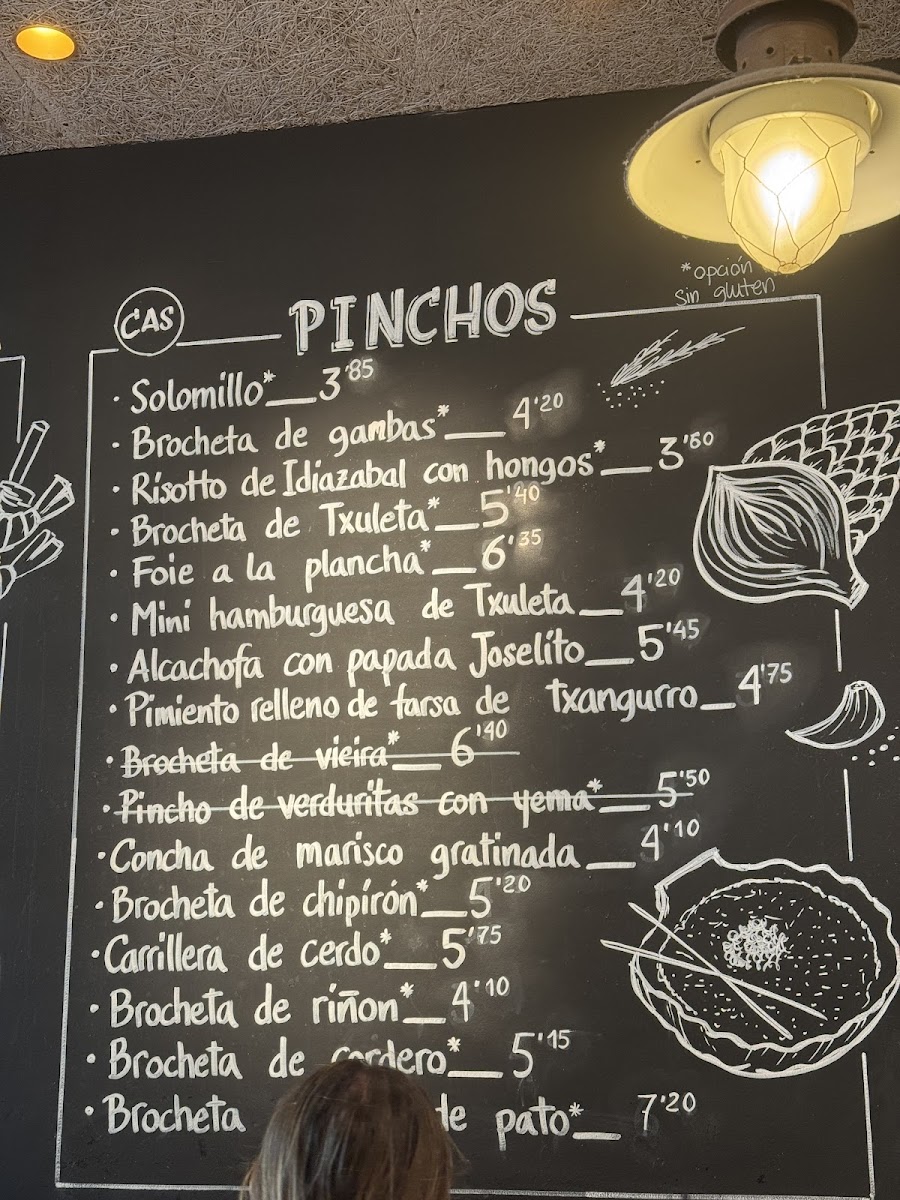 *opción
sin gluten
CAS
PINCHOS
· Solomillo*__3'85
· Brocheta de gambas*__4'20
· Risotto de Idiazabal con hongos*__3'60
· Brocheta de Txuleta*__5'40
· Foie a la plancha*__6'35
· Mini hamburguesa de Txuleta__4'20
· Alcachofa con papada Joselito__5'45
· Pimiento relleno de farsa de txangurro__4'75
· Brocheta de vieira*__6'40
· Pincho de verduritas con yema*__5'50
· Concha de marisco gratinada__4'10
· Brocheta de chipirón*__5'20
· Carrillera de cerdo*__5'75
· Brocheta de riñon*__4'10
· Brocheta de cordero*__5'15
· Brocheta de pato*__7'20